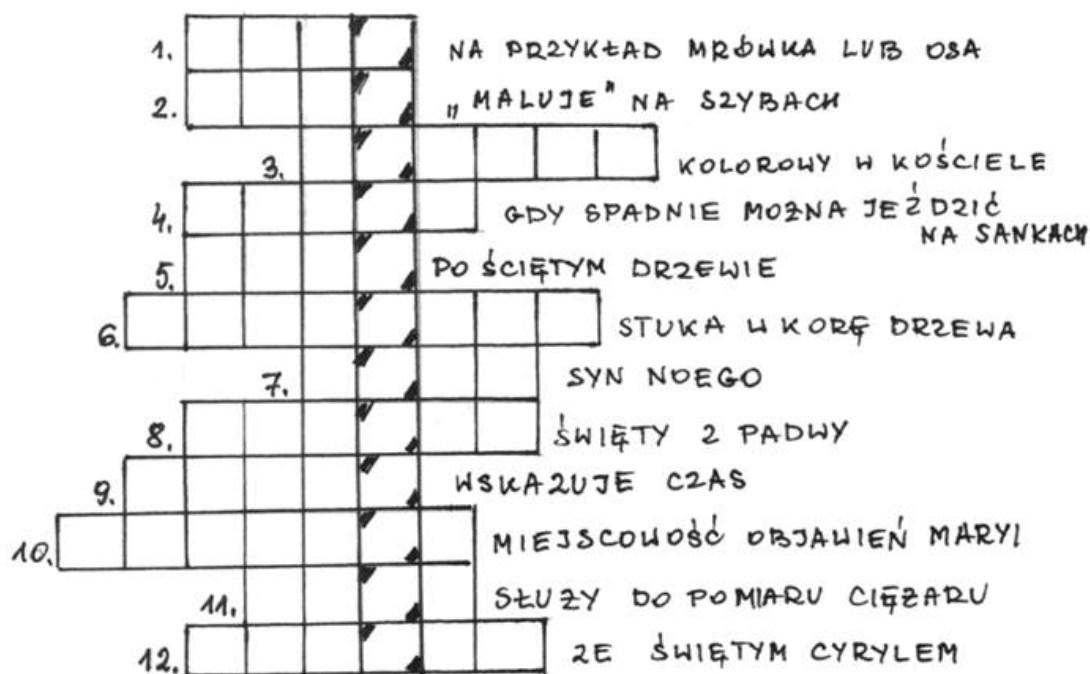 1. NA PRZYKŁAD MRÓWKA LUB OSA
2. „MALUJE" NA SZYBACH
3. KOLOROWY W KOŚCIELE
4. GDY SPADNIE MOŻNA JEŹDZIĆ
NA SANKACH
5. PO ŚCIĘTYM DRZEWIE
6. STUKA W KORĘ DRZEWA
7. SYN NOEGO
8. ŚWIĘTY Z PADWY
9. WSKAZUJE CZAS
10. MIEJSCOWOŚĆ OBJAWIEŃ MARYI
11. SŁUŻY DO POMIARU CIĘŻARU
12. ZE ŚWIĘTYM CYRYLEM